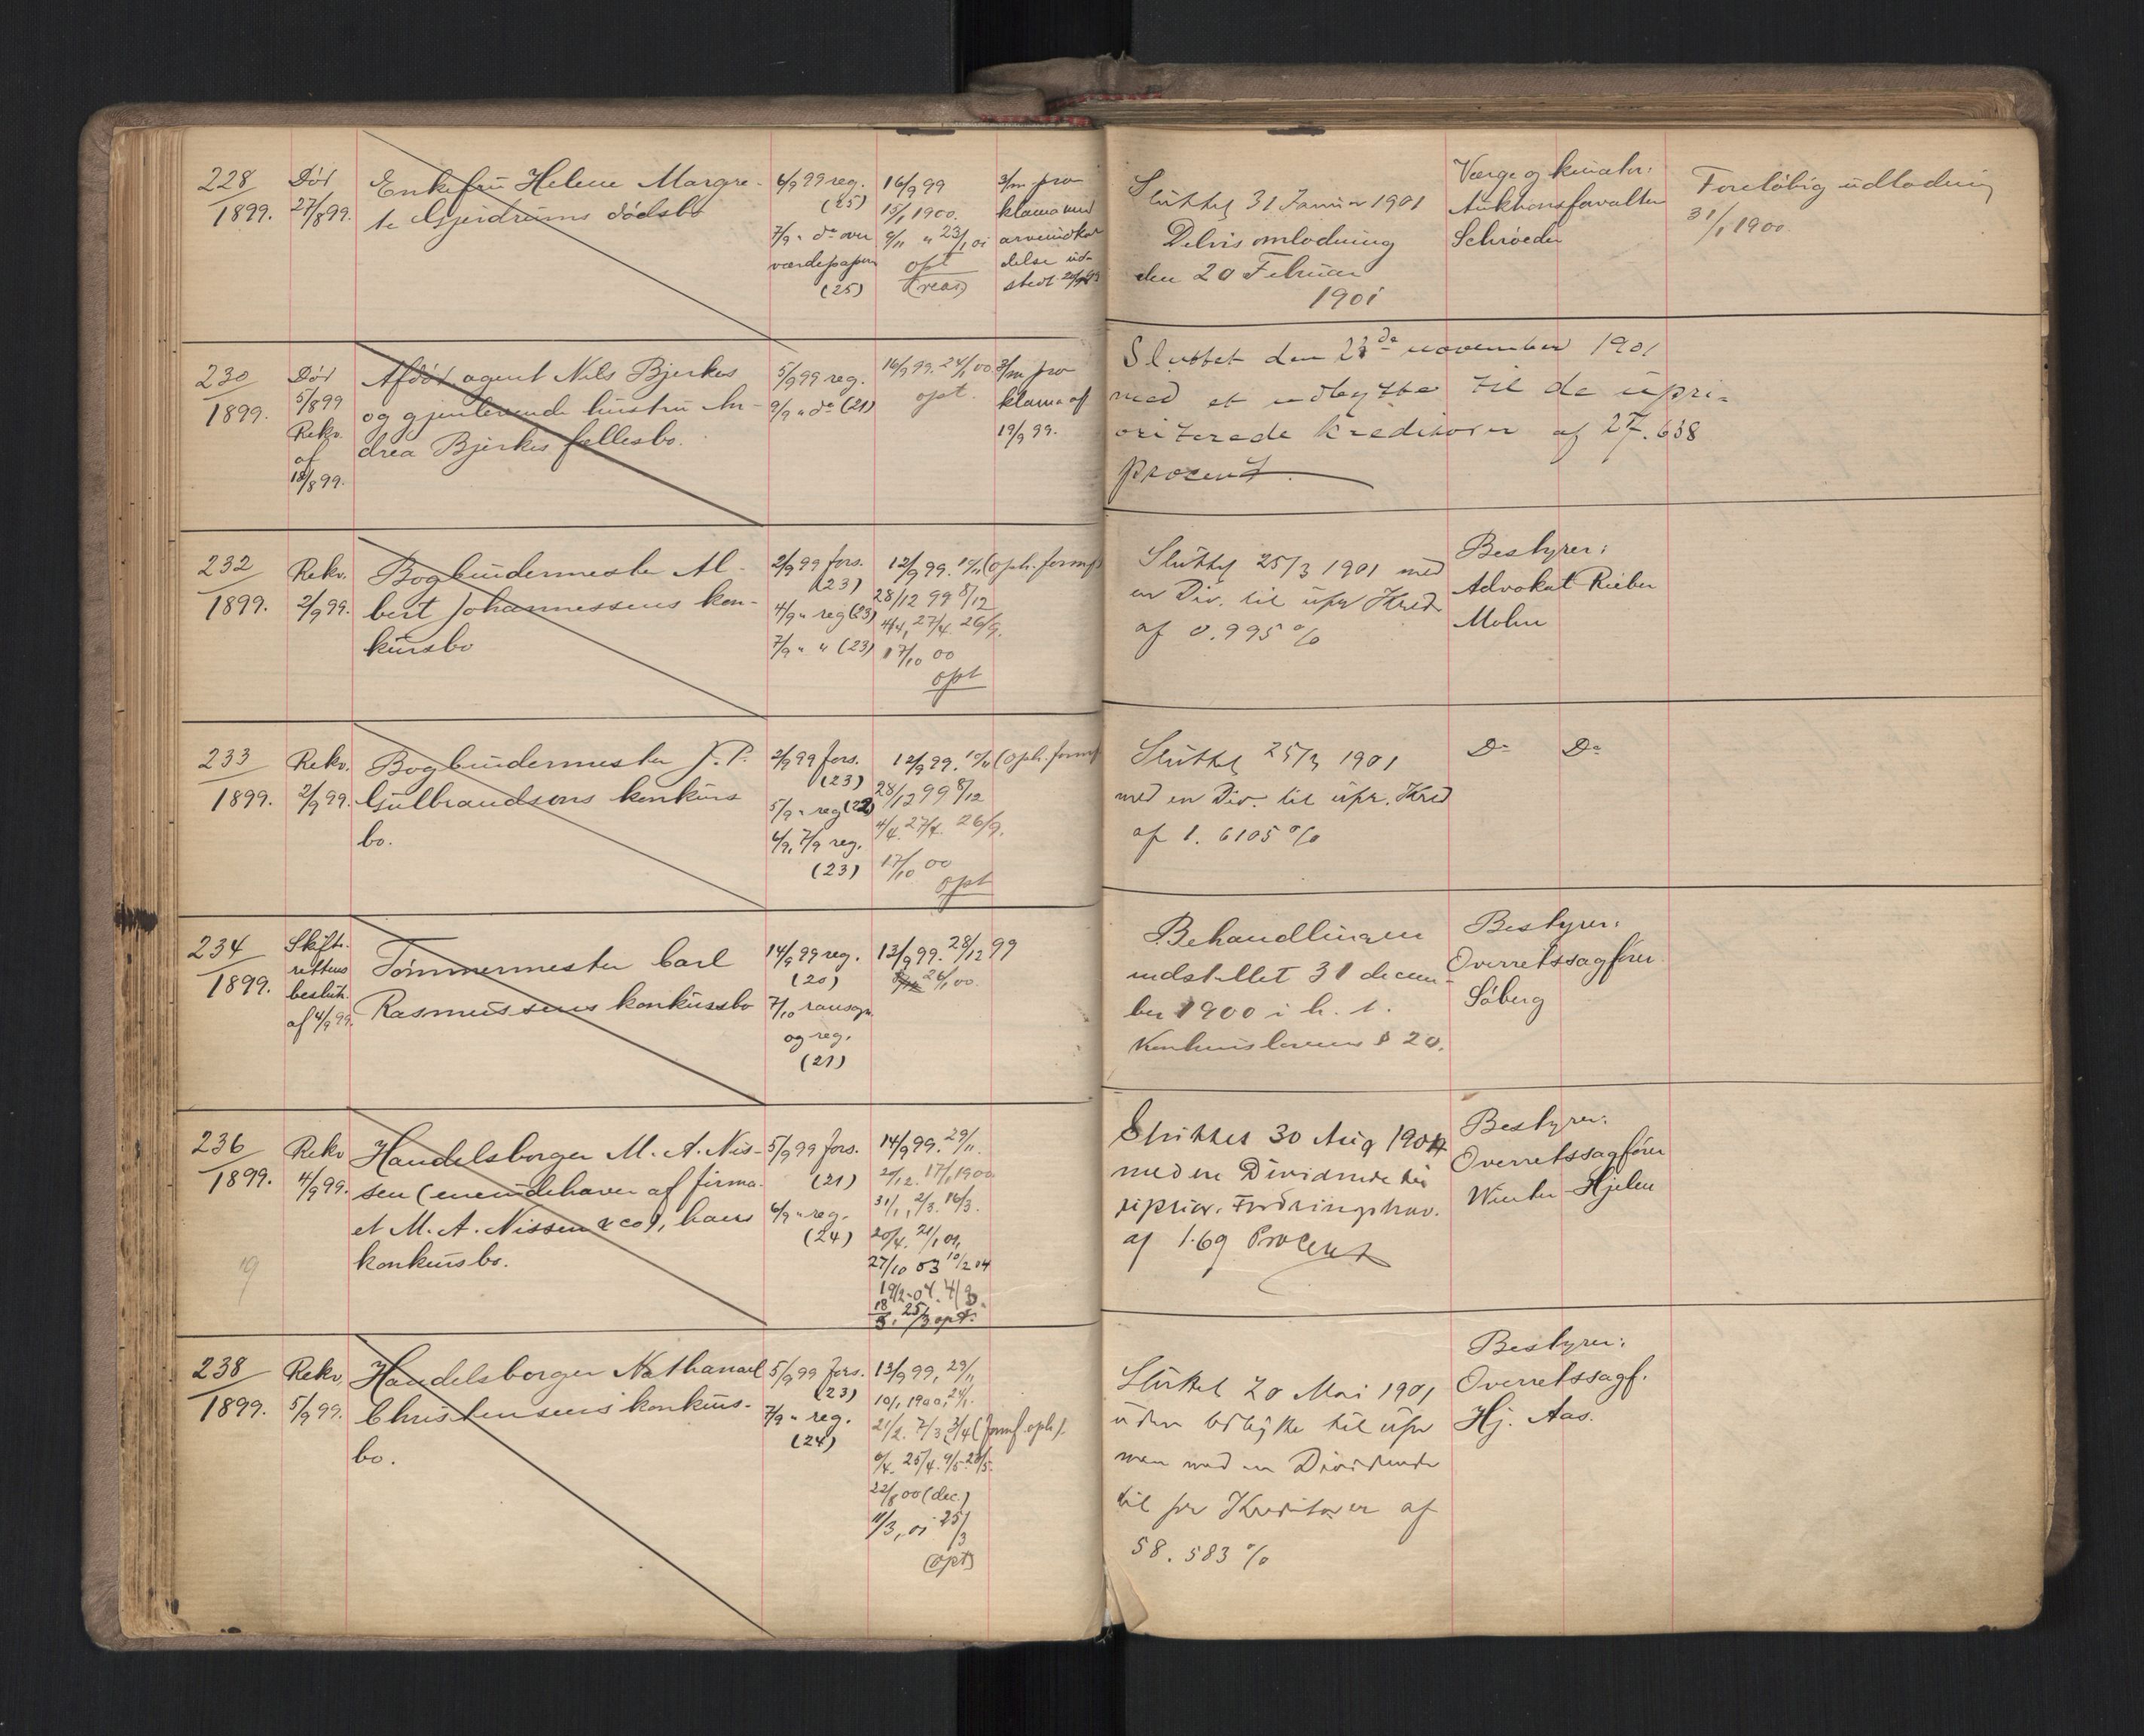 228
1899.
Död
27/8 99.
Enkefru Helene Margre-
te Gjerdrums dödsbo
6/9 99 reg.
(25)
7/9 " do over
værdepapirer
(25)
16/9 99
15/1 1900.
6/11 " 23/1 01
opt
3/m pro
klama med
arveindkal
delse ud-
stedt
Sluttet 31 Januar 1901
Delvis omlodning
den 20 Februar
1901
Værge og kurator:
Auktionsforvalter
Schröeder
Foreløbig udlodning
31/1 1900.
230
1899.
Död
5/8 99
Rekv.
af
18/8 99.
Afdöd. agent Nils Bjerkes
og gjenlevende hustru An-
drea Bjerkes fællesbo.
5/9 99 reg.
9/9 " do (21)
16/9 99. 24/1 00.
opt.
3/m pro
klama af
19/9 99.
Sluttet den de november 1901
med et udbytte til de upri-
oriterede kreditorer af 27.638
procent.
232
1899.
Rekv.
2/9 99.
Bogbindermester Al-
bert Johannessens kon-
kursbo
2/9 99 fors.
(23)
4/9 " reg (23)
7/9 " " (23)
12/9 99. (oph. formf)
28/12 99 8/12
4/4, 27/4. 26/9.
17/10 00
opt
Sluttet 25/3 1901 med
en Div. til upr Kred
af 0.995 %
Bestyrer:
Advokat Rieber
Mohn
233
1899.
Rekv.
2/9 99.
Bogbindermester J. P.
Gulbrandsons konkurs
bo.
2/9 99 fors.
(23)
5/9 " reg (22)
6/9, 7/9 reg.
(23)
12/9 99. (oph. formf
28/12 99 8/12
4/4. 27/4. 26/9.
17/10 00
opt
Sluttet 25/3 1901
med en Div. til upr. Kred
af 1.6105 %
Do Do
234
1899.
Skifte-
rettens
beslut.
af 4/9 99.
Tömmermester Carl
Rasmussens konkursbo
14/9 99 reg.
(20)
7/10 ransagn.
og reg.
(21)
13/9 99. 28/12 99
26/1 00.
Behandlingen
indstillet 31 decem-
ber 1900 i h. t.
Konkurslovens § 20.
Bestyrer:
Overretssagfører
Söberg
236
1899.
Rekv
4/9 99.
Handelsborger M. A. Nis-
sen (eneindehaver af firma-
et M. A. Nissen & co), hans
konkursbo.
5/9 99 fors.
(21)
6/9 " reg.
(24)
14/9 99. 29/11.
17/1 1900
31/1, 2/3. 16/3.
20/4. 21/1 01,
27/10 03 10/2 04
19/2 - 04. 4/3.
18/3, 25/3 opt.
Sluttet 30 Aug 1904
med en Dividende til
uprior. Fordringshav.
af 1.69 Procent
Bestyrer:
Overretssagfører
Winter-Hjelm
19
238
1899.
Rekv.
5/9 99.
Handelsborger Nathanael
Christensens konkurs-
bo.
5/9 99 fors.
(23)
7/9 " reg.
(24)
13/9 99, 29/11
10/1 1900, 24/1.
21/2. 7/3 3/4 (formf. oph).
6/4. 25/4. 9/5. 28/5.
22/8 00 (dec.)
11/3, 01 25/3
(opt)
Sluttet 20 Mai 1901
uden Udbytte til upr
men med en Dividende
til pr Kreditorer af
58.583 %
Bestyrer:
Overretssagf.
Hj. Aas.